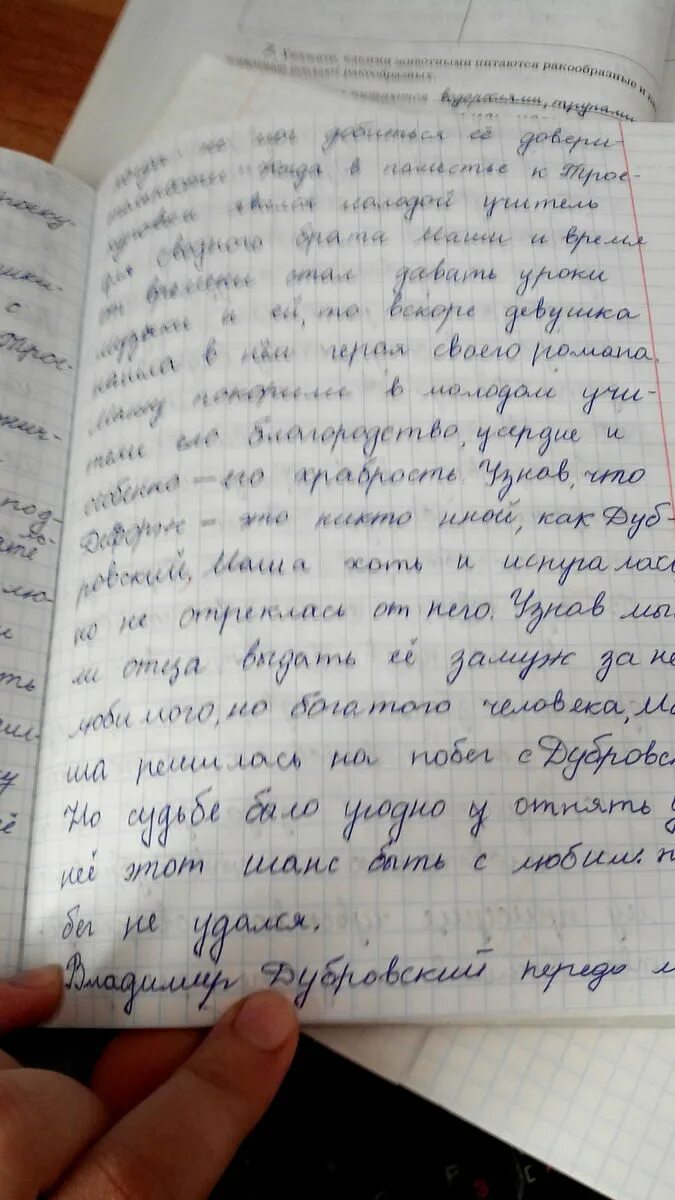 8. Укажите, какими животными питаются ракообразные и ка
ракообразных.
водорослями, трупами
не мог добиться её довери-
Когда в поместье к Трое-
явился молодой учитель
для сводного брата Маши и время
от времени стал давать уроки
музыки и ей, то вскоре девушка
нашла в нём героя своего романа.
Машу покорили в молодом учи-
теле его благородство, усердие и
особенно – его храбрость. Узнав, что
Дефорж – это никто иной, как Дуб-
ровский, Маша хоть и испугалась
но не отреклась от него. Узнав мы
ли отца выдать её замуж за не
любимого, но богатого человека, Ма
ша решилась на побег с Дубровс
Но судьбе было угодно у отнять у
неё этот шанс быть с любим. п
бег не удался.
Владимир Дубровский передо м
роеку-
шки-
с
Трое-
под-
лю-
и
ть
у
её